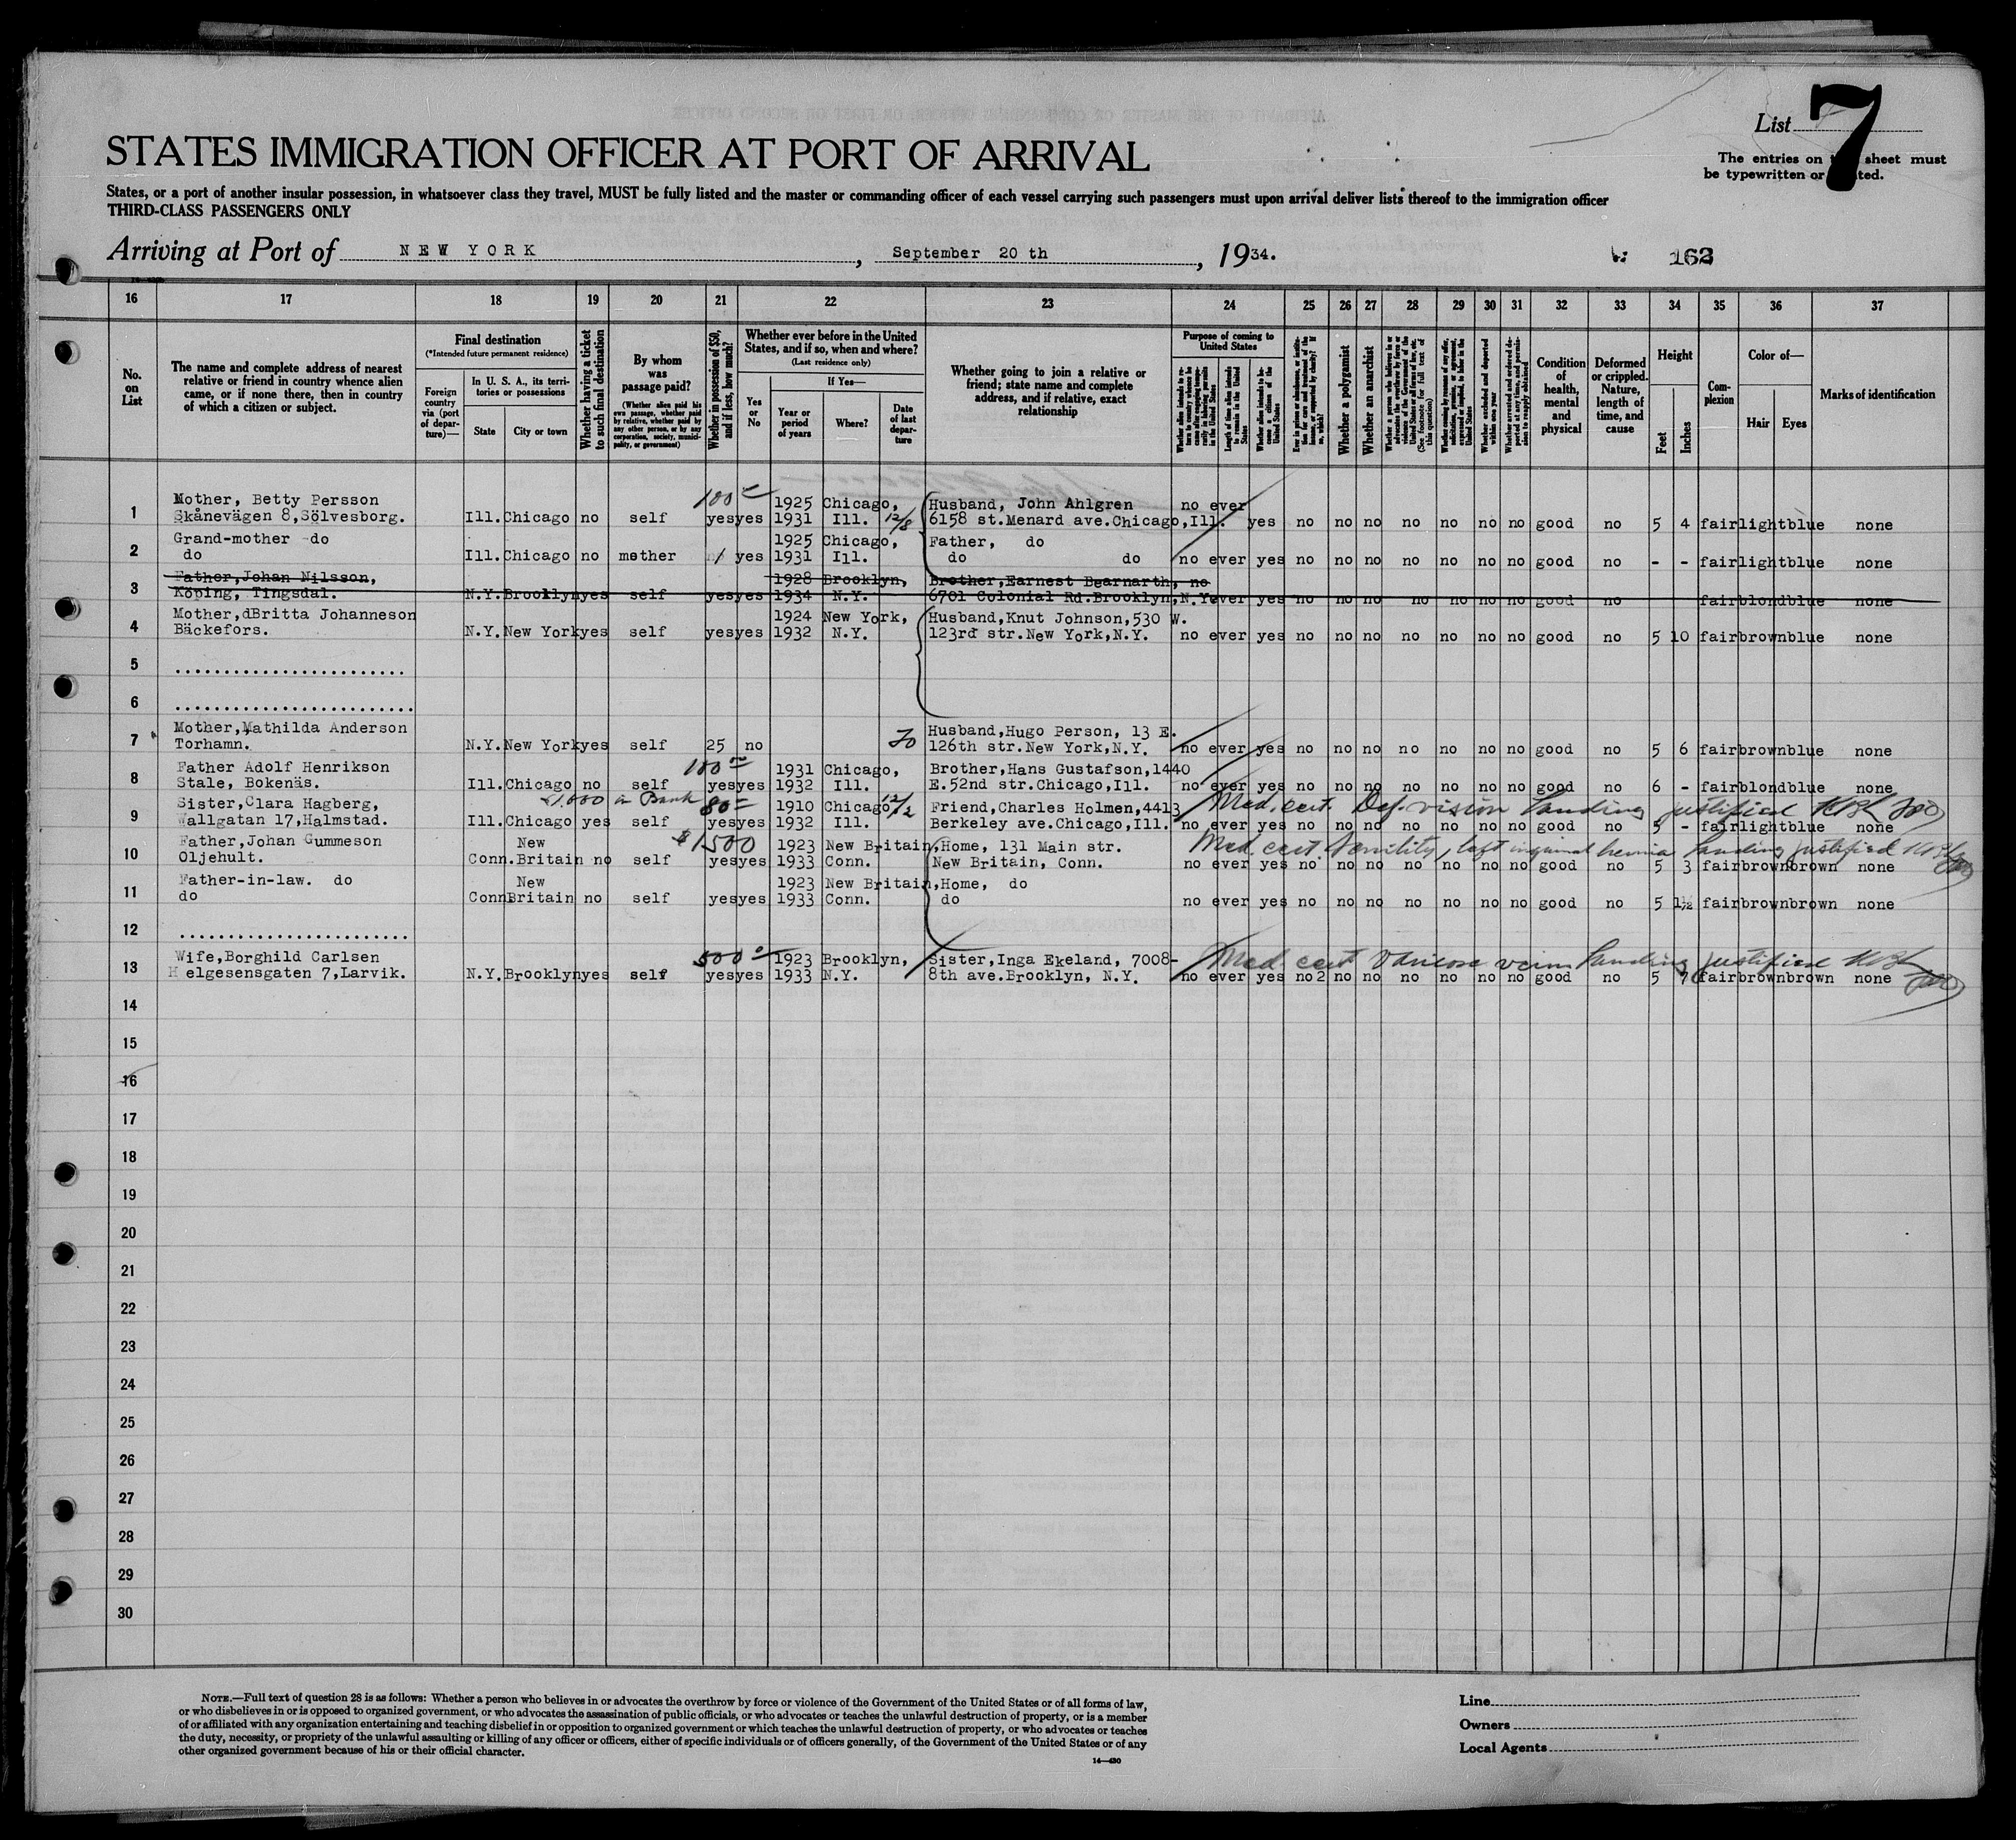 List 7
STATES IMMIGRATION OFFICER AT PORT OF ARRIVAL
The entries on sheet must
be typewritten or
States, or a port of another insular possession, in whatsoever class they travel, MUST be fully listed and the master or commanding officer of each vessel carrying such passengers must upon arrival deliver lists thereof to the immigration officer
THIRD-CLASS PASSENGERS ONLY
Arriving at Port of NEW YORK, September 20 th, 1934.
162
16 17 18 19 20 21 22 23 24 25 26 27 28 29 30 31 32 33 34 35 36 37
No. on List
The name and complete address of nearest relative or friend in country whence alien came, or if none there, then in country of which a citizen or subject.
Final destination
(*Intended future permanent residence)
Foreign country via (port of departure)—
In U. S. A., its territories or possessions
State
City or town
Whether having a ticket to such final destination
By whom was passage paid?
(Whether alien paid his own passage, whether paid by relative, whether paid by any other person, or by any corporation, society, municipality, or government)
Whether in possession of $50, and if less, how much?
Whether ever before in the United States, and if so, when and where?
(Last residence only)
Yes or No
If Yes—
Year or period of years
Where?
Date of last departure
Whether going to join a relative or friend; state name and complete address, and if relative, exact relationship
Purpose of coming to United States
Length of time alien intends to remain in the United States
Whether alien intends to become a citizen of the United States
Whether a polygamist
Whether an anarchist
(See footnote for full text of this question)
Whether excluded and deported within one year
Condition of health, mental and physical
Deformed or crippled. Nature, length of time, and cause
Height
Feet
Inches
Complexion
Color of—
Hair
Eyes
Marks of identification
Mother, Betty Persson 100 1925 Chicago, Husband, John Ahlgren no ever
1 Skånevägen 8,Sölvesborg. Ill. Chicago no self yes yes 1931 Ill. 12/8 6158 st.Menard ave.Chicago,Ill. yes no no no no no no no good no 5 4 fair light blue none
Grand-mother do 1925 Chicago, Father, do
2 do Ill. Chicago no mother yes 1931 Ill. do do no ever yes no no no no no no no good no - - fair light blue none
Father,Johan Nilsson, 1928 Brooklyn, Brother,Earnest Bearnarth, no
3 Köping, Tingsdal. N.Y. Brooklyn yes self yes yes 1934 N.Y. 6701 Colonial Rd.Brooklyn,N.Y. ever yes no no no no no no no good no fair blond blue none
Mother,dBritta Johanneson 1924 New York, Husband,Knut Johnson,530 W.
4 Bäckefors. N.Y. New York yes self yes yes 1932 N.Y. 123rd str.New York,N.Y. no ever yes no no no no no no no good no 5 10 fair brown blue none
5 ........................
6 ........................
Mother,Mathilda Anderson Husband,Hugo Person, 13 E.
7 Torhamn. N.Y. New York yes self 25 no 126th str.New York,N.Y. no ever yes no no no no no no no good no 5 6 fair brown blue none
Father Adolf Henrikson 100 1931 Chicago, Brother,Hans Gustafson,1440
8 Stale, Bokenäs. Ill. Chicago no self yes yes 1932 Ill. E.52nd str.Chicago,Ill. no ever yes no no no no no no no good no 6 - fair blond blue none
Sister,Clara Hagberg, $1,000 in Bank 80 1910 Chicago 12/2 Friend,Charles Holmen,4413 Med. cert. Def. vision landing justified
9 Wallgatan 17,Halmstad. Ill. Chicago yes self yes yes 1932 Ill. Berkeley ave.Chicago,Ill. no ever yes no no no no no no no good no 5 - fair light blue none
Father,Johan Gummeson New $1500 1923 New Britain, Home, 131 Main str. Med. cert. Senility, left inguinal hernia landing justified
10 Oljehult. Conn. Britain no self yes yes 1933 Conn. New Britain, Conn. no ever yes no no no no no no no good no 5 3 fair brown brown none
Father-in-law. do New 1923 New Britain, Home, do
11 do Conn Britain no self yes yes 1933 Conn. do no ever yes no no no no no no no good no 5 1½ fair brown brown none
12 ........................
Wife,Borghild Carlsen 500 1923 Brooklyn, Sister,Inga Ekeland, 7008- Med cert Varicose veins landing justified
13 Helgesensgaten 7,Larvik. N.Y. Brooklyn yes self yes yes 1933 N.Y. 8th ave.Brooklyn, N.Y. no ever yes no 2 no no no no no no good no 5 7 fair brown brown none
14
15
16
17
18
19
20
21
22
23
24
25
26
27
28
29
30
NOTE.—Full text of question 28 is as follows: Whether a person who believes in or advocates the overthrow by force or violence of the Government of the United States or of all forms of law,
or who disbelieves in or is opposed to organized government, or who advocates the assassination of public officials, or who advocates or teaches the unlawful destruction of property, or is a member
of or affiliated with any organization entertaining and teaching disbelief in or opposition to organized government or which teaches the unlawful destruction of property, or who advocates or teaches
the duty, necessity, or propriety of the unlawful assaulting or killing of any officer or officers, either of specific individuals or of officers generally, of the Government of the United States or of any
other organized government because of his or their official character.
14—430
Line
Owners
Local Agents